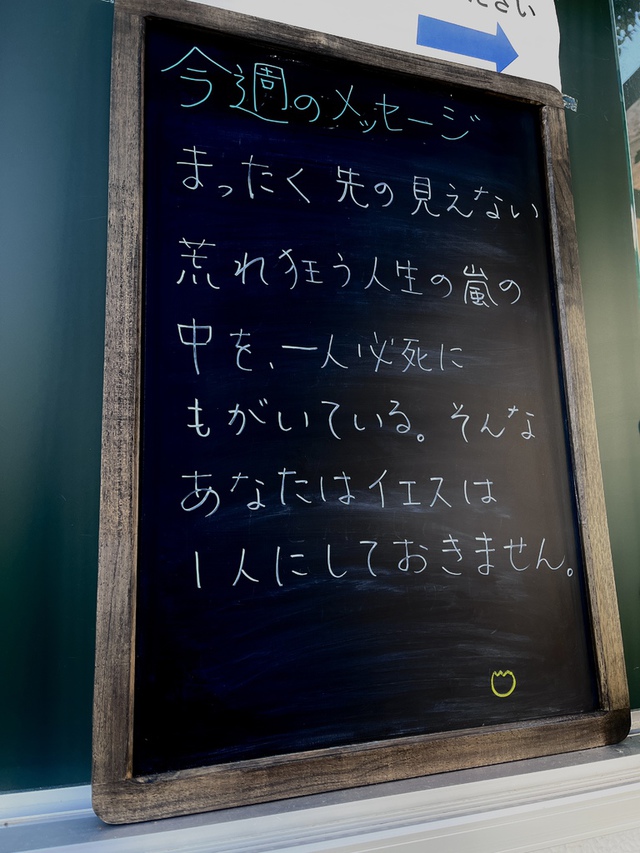 ださい
今週のメッセージ
まったく 先の見えない
荒れ狂う人生の嵐の
中を、一人必死に
もがいている。そんな
あなたはイエスは
1人にしておきません。